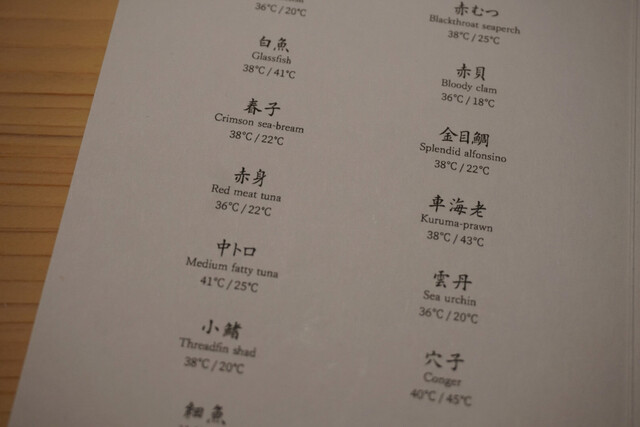 36℃ / 20℃
白魚
Glassfish
38℃ / 41℃
春子
Crimson sea-bream
38℃ / 22℃
赤身
Red meat tuna
36℃ / 22℃
中トロ
Medium fatty tuna
41℃ / 25℃
小鰭
Threadfin shad
38℃ / 20℃
細魚
赤むつ
Blackthroat seaperch
38℃ / 25℃
赤貝
Bloody clam
36℃ / 18℃
金目鯛
Splendid alfonsino
38℃ / 22℃
車海老
Kuruma-prawn
38℃ / 43℃
雲丹
Sea urchin
36℃ / 20℃
穴子
Conger
40℃ / 45℃